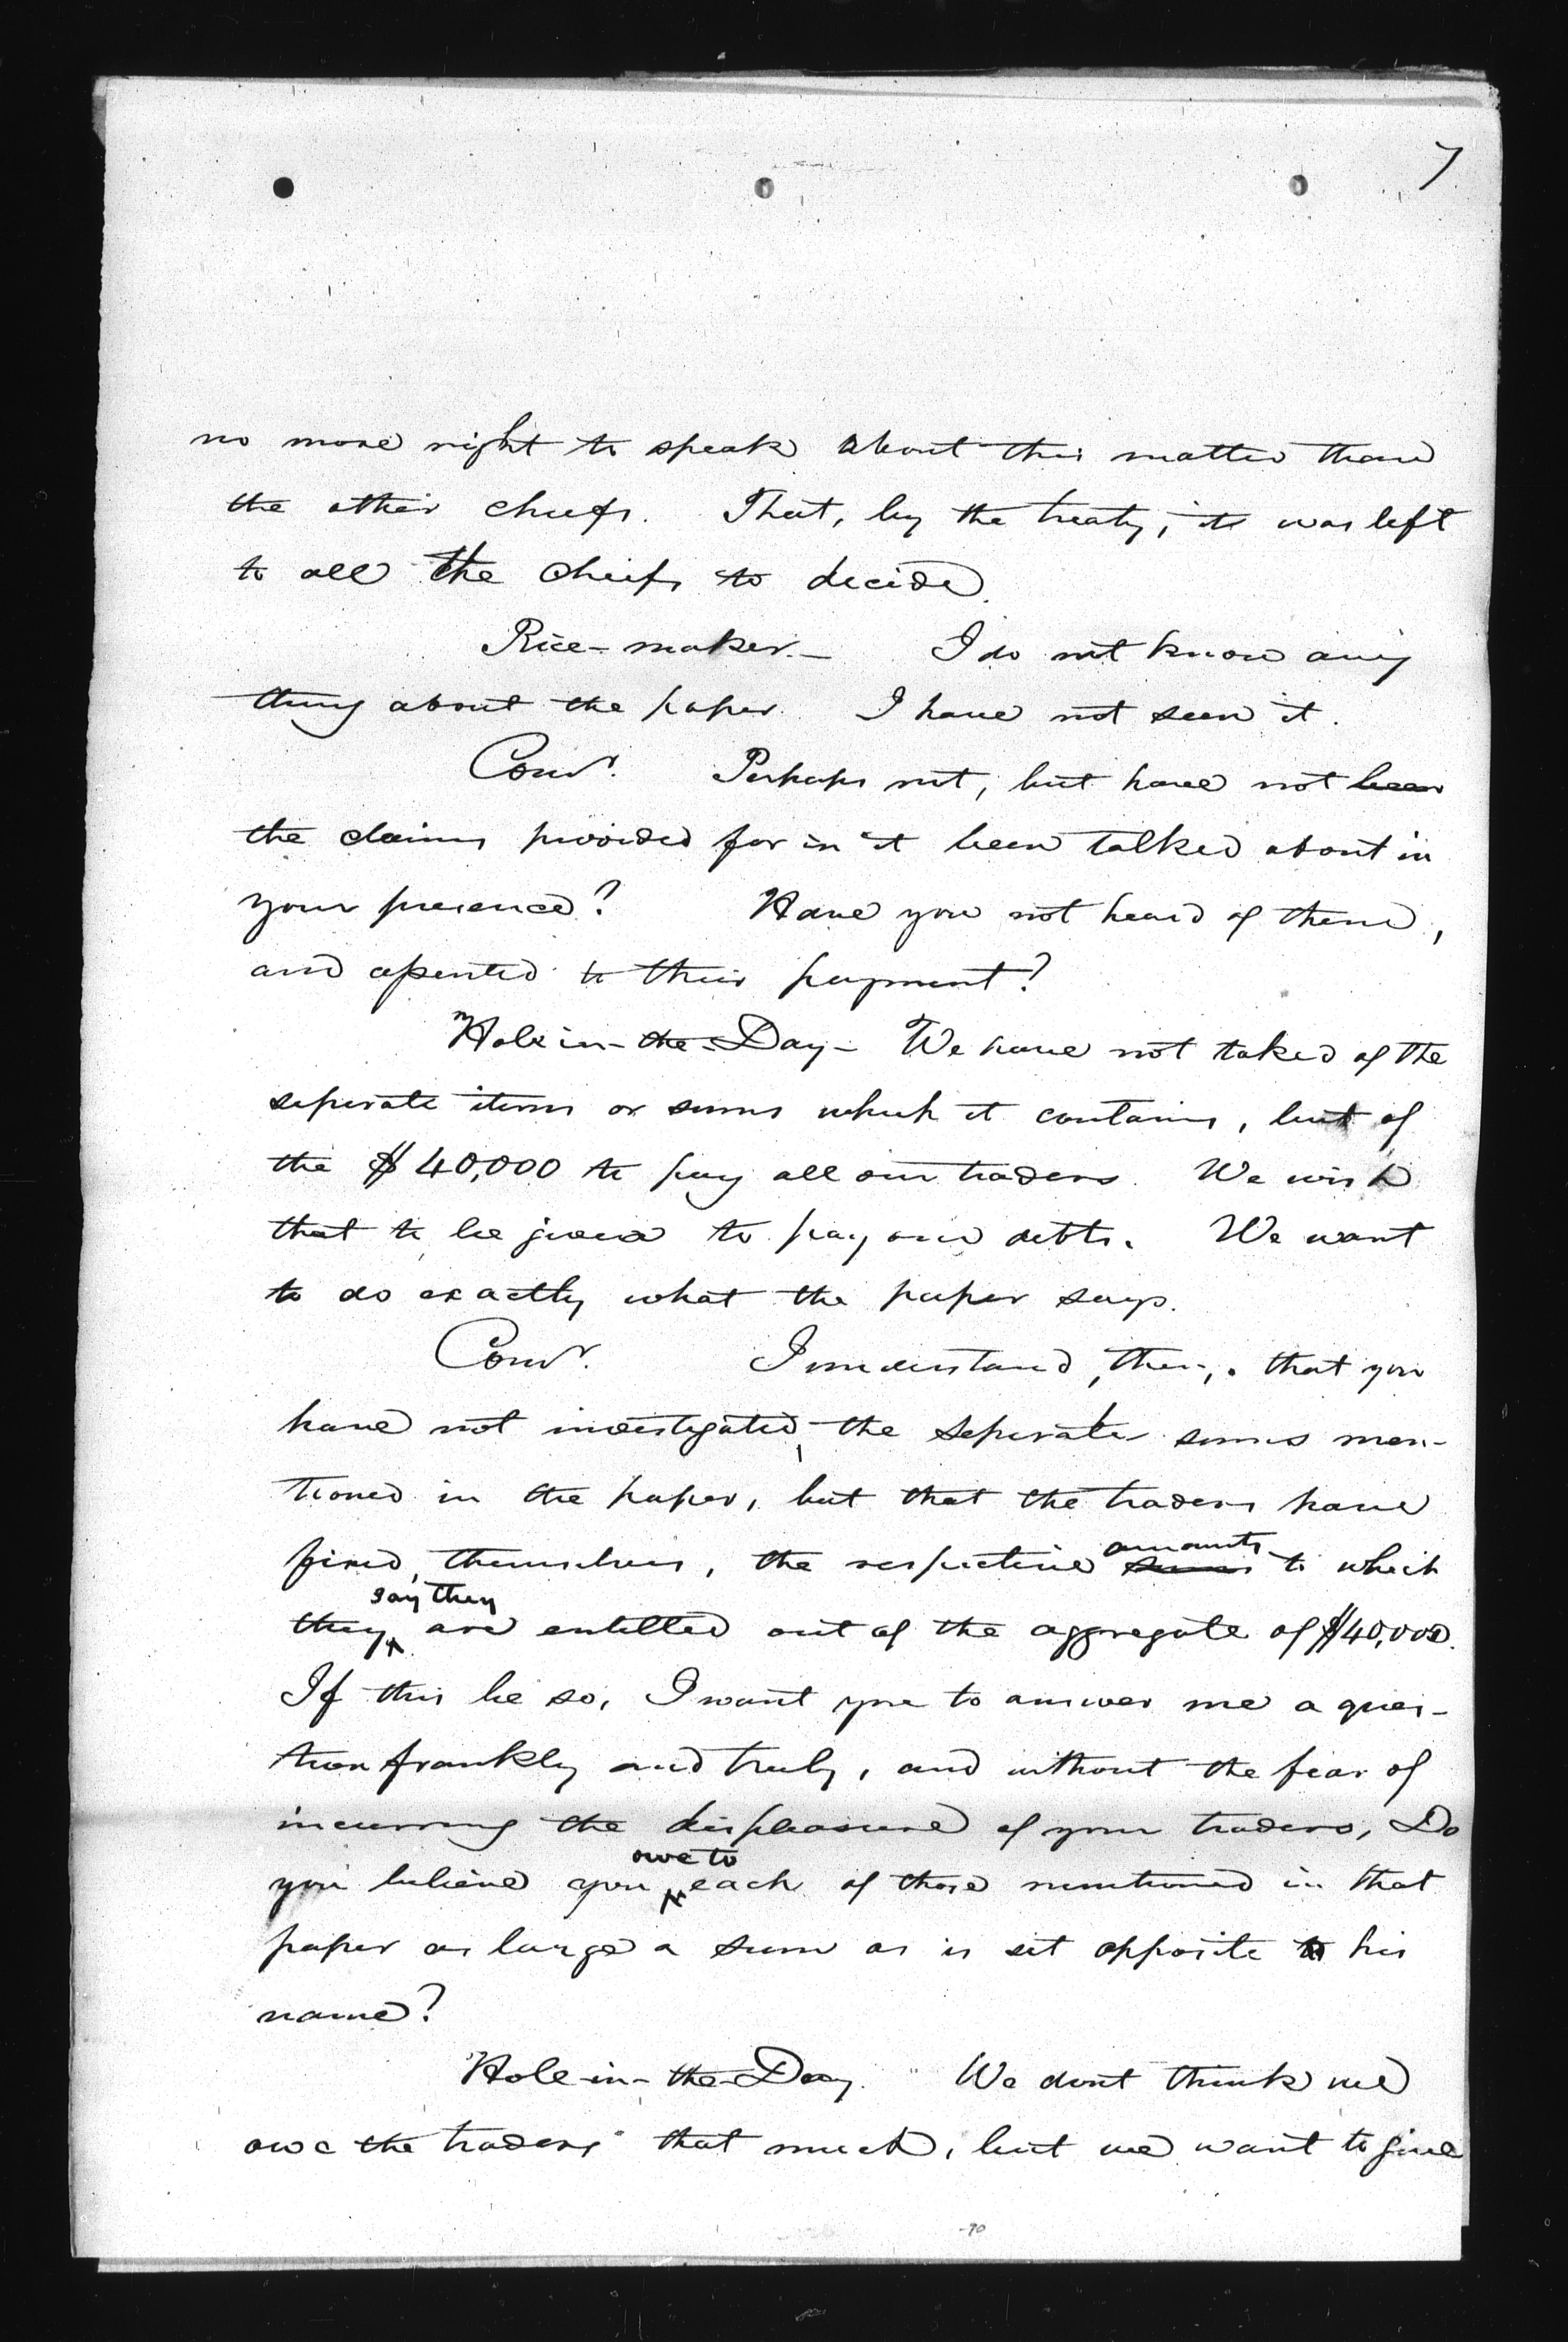 7
no more right to speak about this matter than
the other chiefs. That, by the treaty, it was left
to all the chiefs to decide.
Rice-maker.- I do not know any
thing about the paper. I have not seen it.
Comr. Perhaps not, but have not been
the claims provided for in it been talked about in
your presence? Have you not heard of them,
and assented to their payment?
Hole-in-the-Day- We have not taked of the
seperate items or sums which it contains, but of
the $40,000 to pay all our traders. We wish
that to be given to pay our debts. We want
to do exactly what the paper says.
Comr. I understand, then, that you
have not investigated, the seperate sums men-
tioned in the paper, but that the traders have
fixed, themselves, the respective sums amounts to which
they say they are entitled out of the aggregate of $40,000.
If this be so, I want you to answer me a ques-
tion frankly and truly, and without the fear of
incurring the displeasure of your traders, Do
you believe you owe to each of those mentioned in that
paper as large a sum as is set opposite to his
name?
Hole-in-the-Day. We dont think we
owe the traders that much, but we want to give